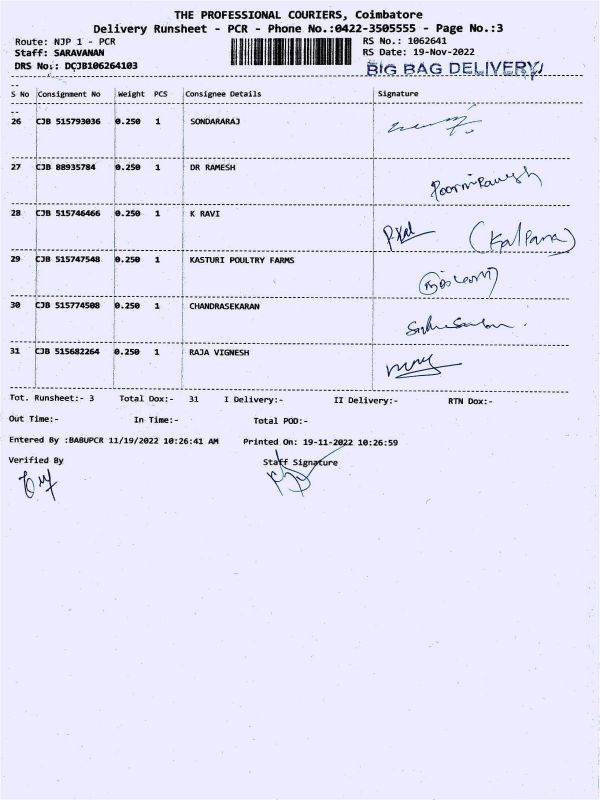 THE PROFESSIONAL COURIERS, Coimbatore
Delivery Runsheet - PCR - Phone No.:0422-3505555 - Page No.:3
Route: NJP 1 - PCR RS No.: 1062641
Staff: SARAVANAN RS Date: 19-Nov-2022
DRS No.: DCJB106264103 BIG BAG DELIVERY
--
S No Consignment No Weight PCS Consignee Details Signature
--
26 CJB 515793036 0.250 1 SONDARARAJ
27 CJB 88935784 0.250 1 DR RAMESH
28 CJB 515746466 0.250 1 K RAVI (Kalpana)
29 CJB 515747548 0.250 1 KASTURI POULTRY FARMS
30 CJB 515774508 0.250 1 CHANDRASEKARAN
31 CJB 515682264 0.250 1 RAJA VIGNESH
Tot. Runsheet:- 3 Total Dox:- 31 I Delivery:- II Delivery:- RTN Dox:-
Out Time:- In Time:- Total POD:-
Entered By :BABUPCR 11/19/2022 10:26:41 AM Printed On: 19-11-2022 10:26:59
Verified By Staff Signature